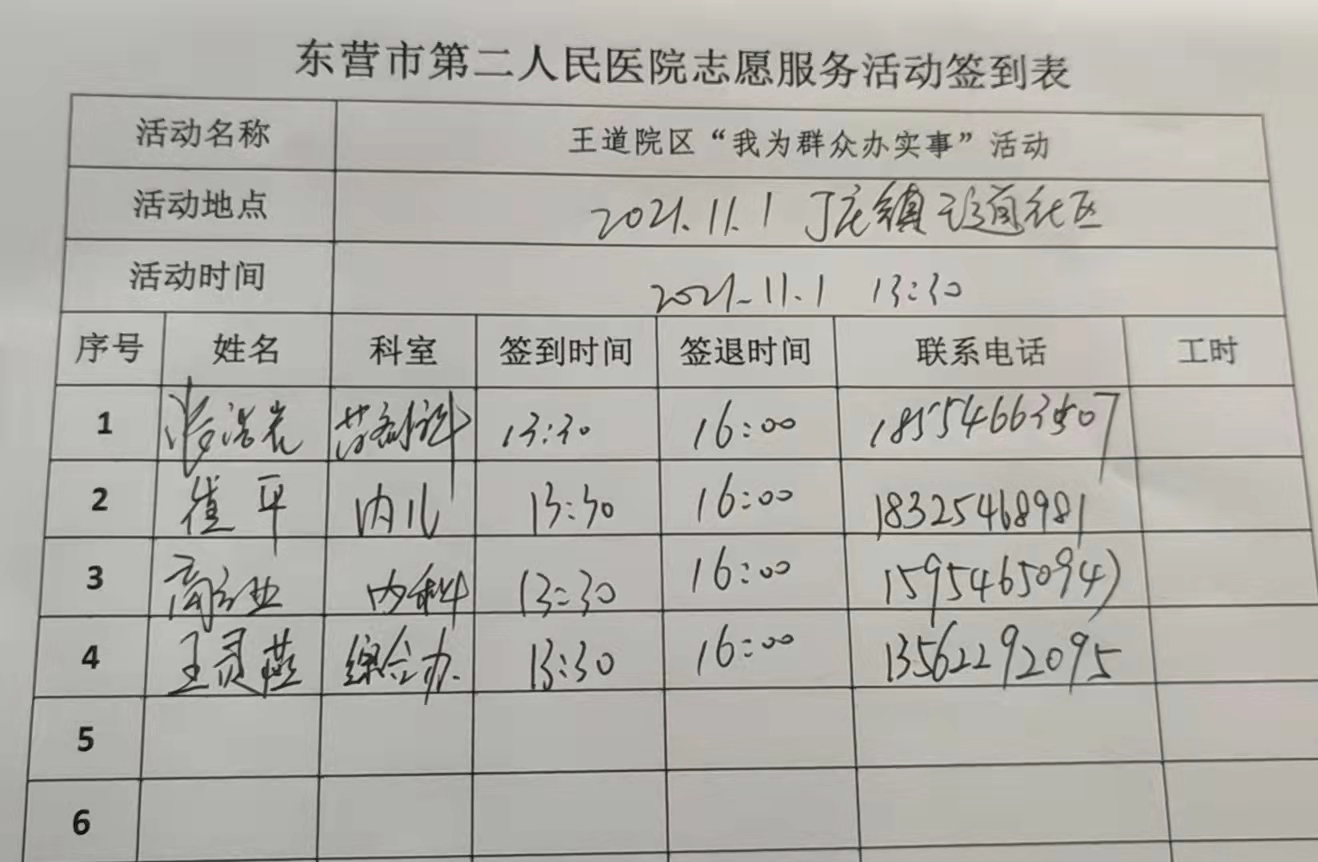 东营市第二人民医院志愿服务活动签到表
活动名称 王道院区“我为群众办实事”活动
活动地点 2021.11.1 丁庄镇王道社区
活动时间 2021.11.1 13:30
序号 姓名 科室 签到时间 签退时间 联系电话 工时
1 13:30 16:00 18554663507
2 崔平 内儿 13:30 16:00 18325468981
3 内科 13:30 16:00 15954650947
4 王灵燕 综合办 13:30 16:00 13562292095
5
6